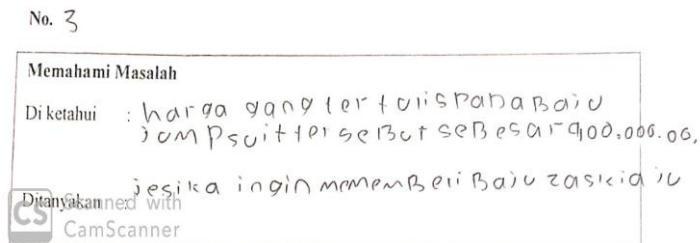 No. 3
Memahami Masalah
Di ketahui : harga yang tertulis pada Baju
jompsuit terseBut seBesar 900.000.00.
Ditanyakan jesika ingin mememBeli Baju zaskia
CS Scanned with
CamScanner